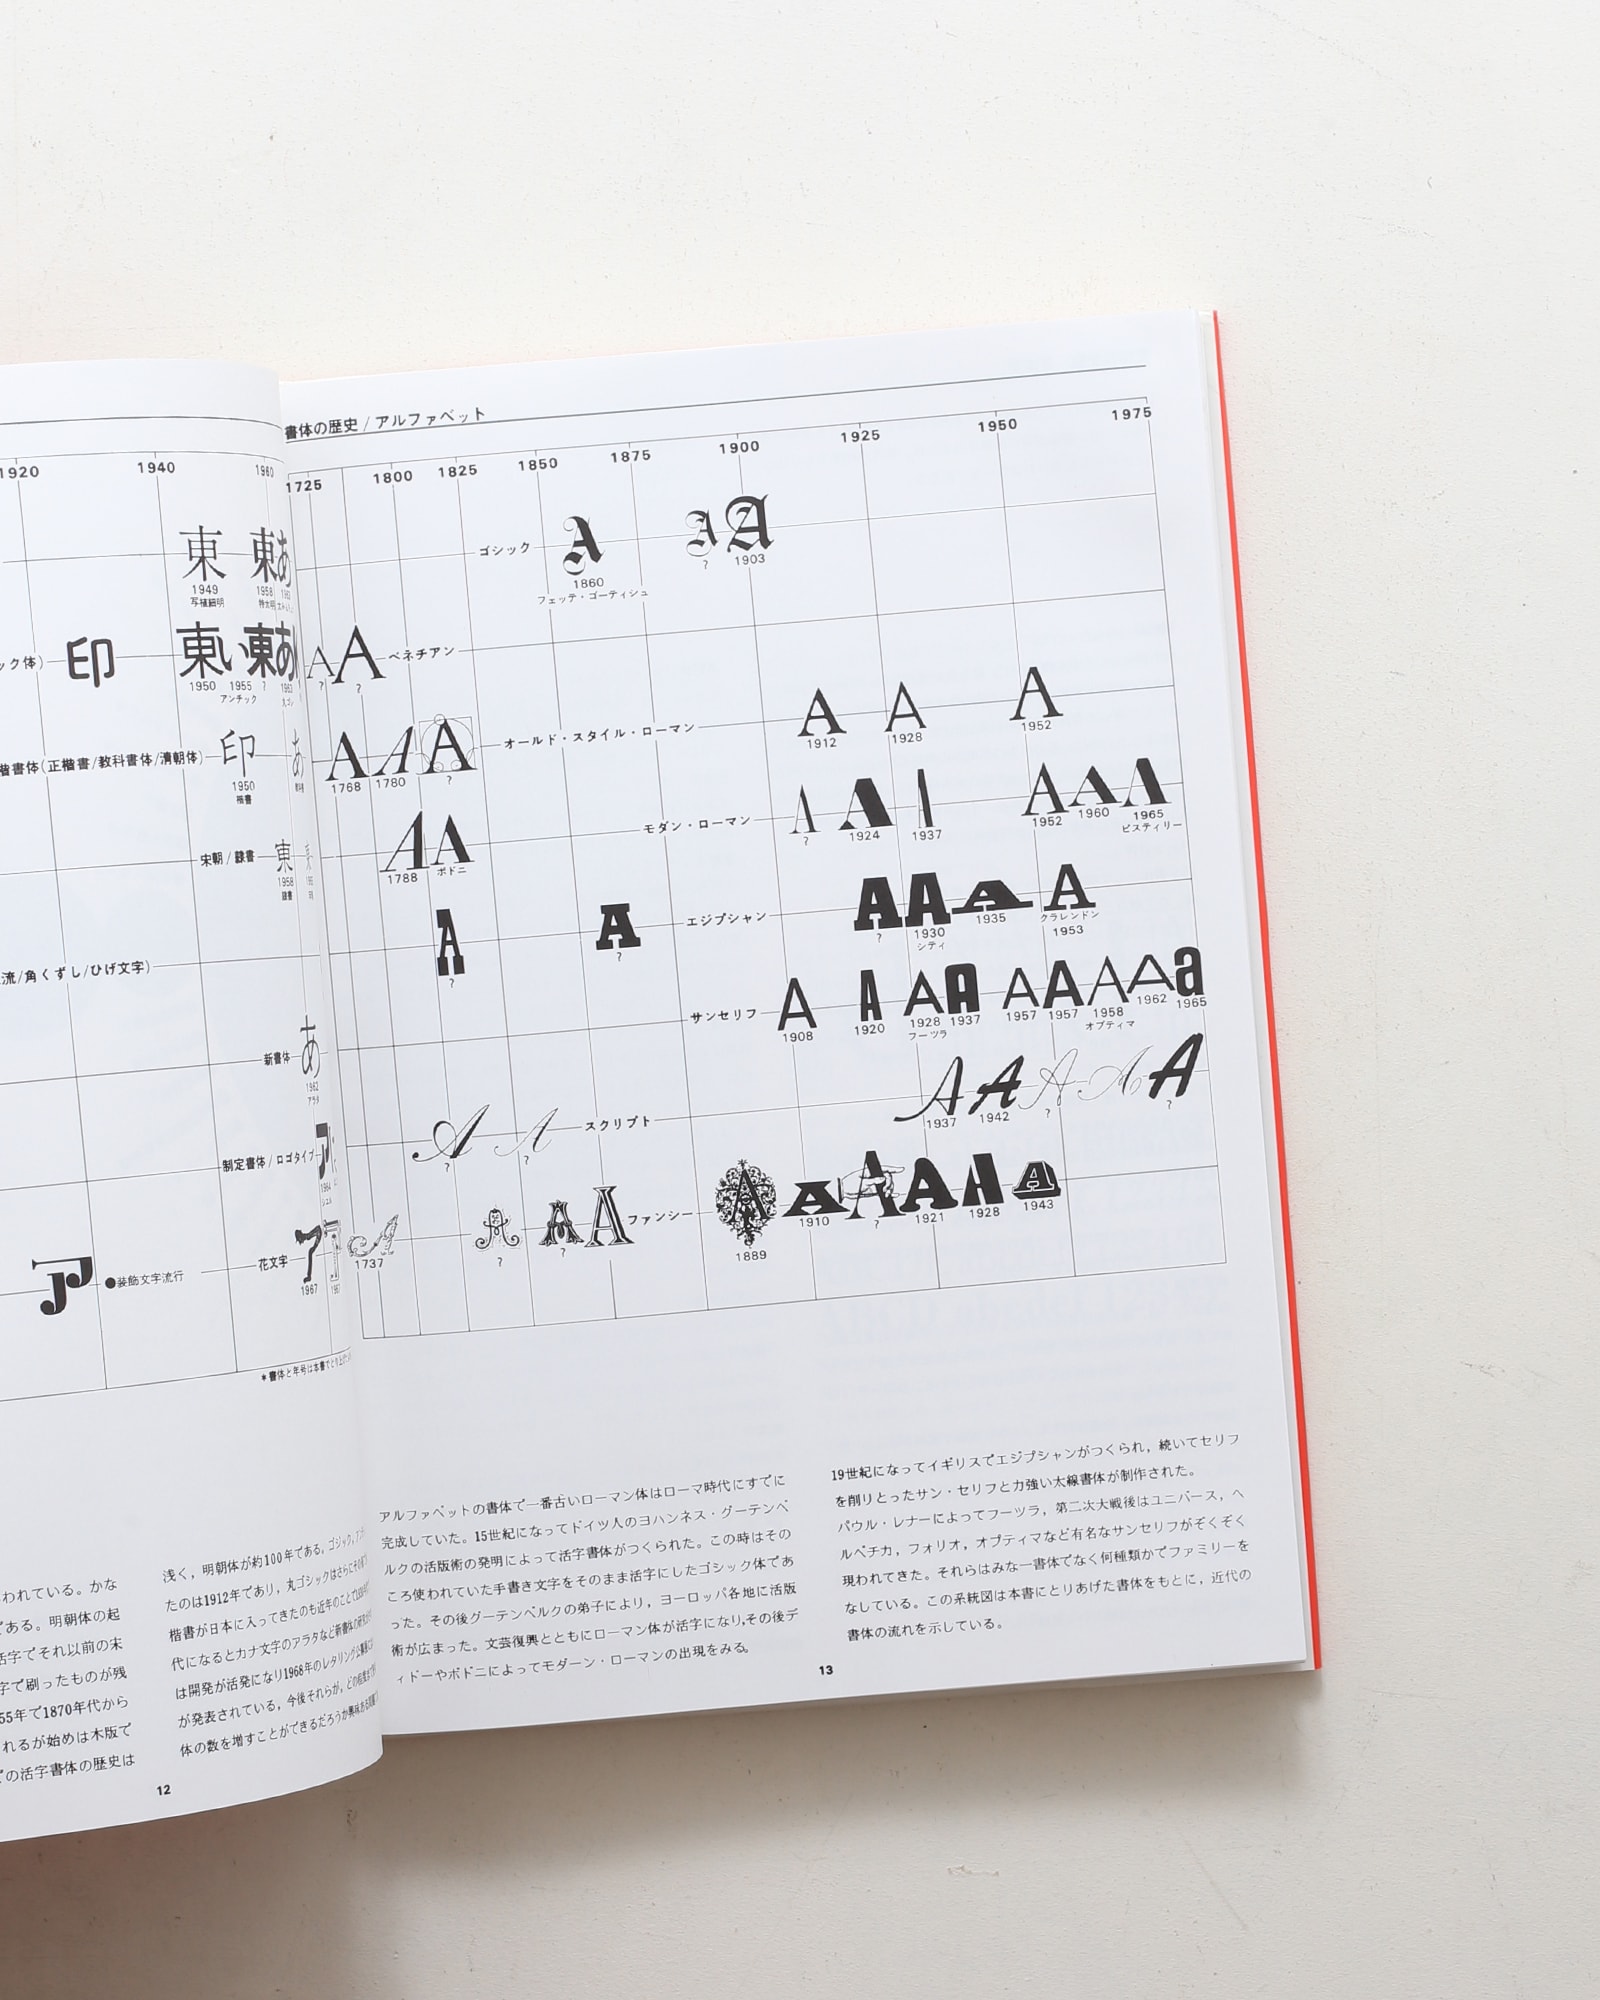 1920 1940 1960
東 東あ
1949 1958
写植細明 特太明
ック体) 印 東い東あ
1950 1955 ? 1963
アンチック
楷書体(正楷書/教科書体/清朝体) 印 あ
1950
楷書
宋朝/隷書 東
1958
隷書
流/角くずし/ひげ文字)
新書体 あ
1962
アラタ
制定書体/ロゴタイプ ア
1964
ア ●装飾文字流行 花文字 ア
1967
われている。かな
である。明朝体の起
活字でそれ以前の末
字で刷ったものが残
55年で1870年代から
れるが始めは木版で
の活字書体の歴史は
浅く，明朝体が約100年である。ゴシック，
たのは1912年であり，丸ゴシックはさらに
楷書が日本に入ってきたのも近年のことで
代になるとカナ文字のアラタなど新書体の
は開発が活発になり1968年のレタリング
が発表されている，今後それらが，どの程度
体の数を増すことができるだろうか興味ある
12
書体の歴史/アルファベット
1725 1800 1825 1850 1875 1900 1925 1950 1975
ゴシック A A A
1860 ? 1903
フェッテ・ゴーティシュ
A A ベネチアン
? ?
A A A オールド・スタイル・ローマン A A A
1768 1780 ? 1912 1928 1952
A A モダン・ローマン A A A A A A
1788 ボドニ ? 1924 1937 1952 1960 1965
ピスティリー
A A エジプシャン A A A A
? ? ? 1930 1935 クラレンドン
シティ 1953
サンセリフ A A A A A A A A a
1908 1920 1928 1937 1957 1957 1958 1962 1965
フーツラ オプティマ
A A スクリプト A A A A A
? ? 1937 1942 ? ?
A A A A ファンシー A A A A A A
1737 ? ? 1889 1910 ? 1921 1928 1943
アルファベットの書体で一番古いローマン体はローマ時代にすでに
完成していた。15世紀になってドイツ人のヨハンネス・グーテンベ
ルクの活版術の発明によって活字書体がつくられた。この時はその
ころ使われていた手書き文字をそのまま活字にしたゴシック体であ
った。その後グーテンベルクの弟子により，ヨーロッパ各地に活版
術が広まった。文芸復興とともにローマン体が活字になり，その後デ
ィドーやボドニによってモダーン・ローマンの出現をみる。
19世紀になってイギリスでエジプシャンがつくられ，続いてセリフ
を削りとったサン・セリフと力強い太線書体が制作された。
パウル・レナーによってフーツラ，第二次大戦後はユニバース，ヘ
ルベチカ，フォリオ，オプティマなど有名なサンセリフがぞくぞく
現われてきた。それらはみな一書体でなく何種類かでファミリーを
なしている。この系統図は本書にとりあげた書体をもとに，近代の
書体の流れを示している。
13